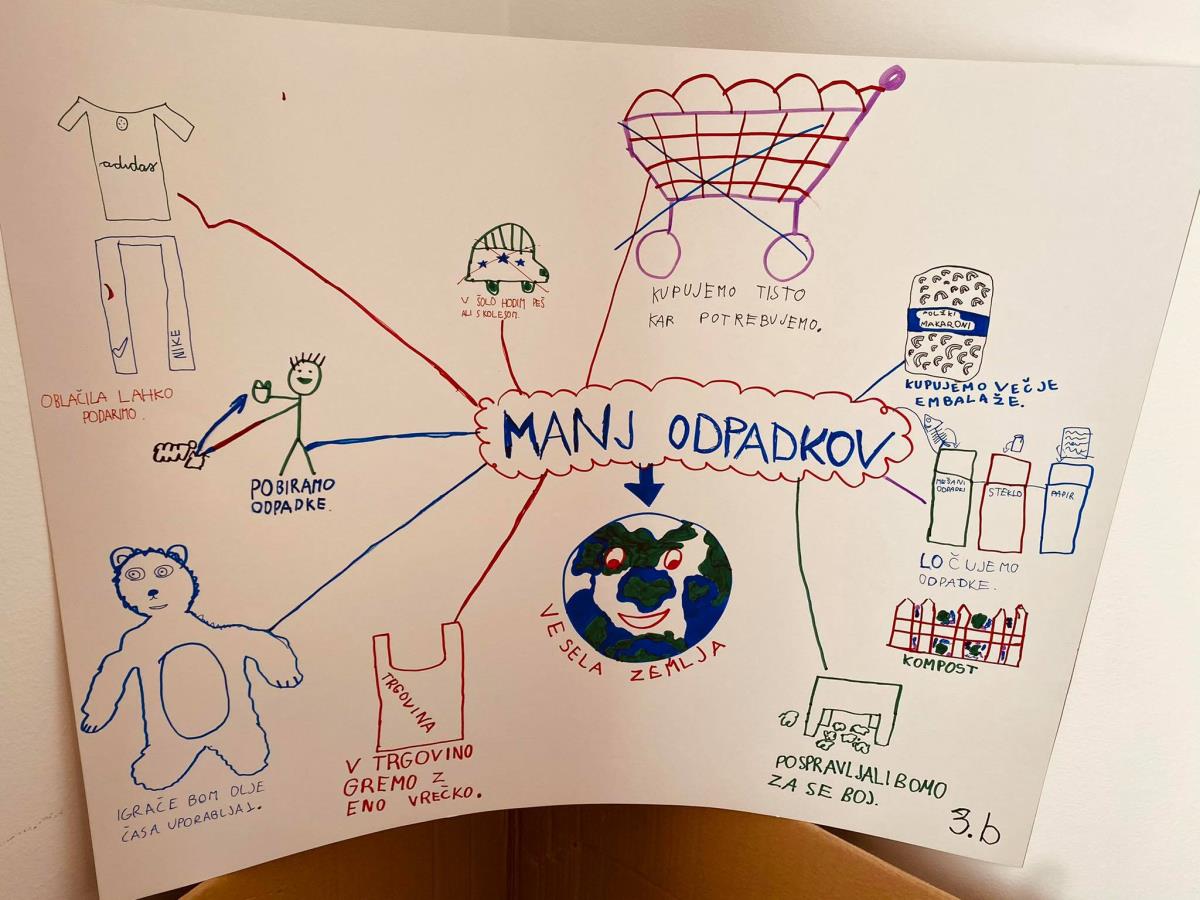 adidas
NIKE
OBLAČILA LAHKO
PODARIMO.
V ŠOLO HODIM PEŠ
ALI S KOLESOM.
KUPUJEMO TISTO
KAR POTREBUJEMO.
POLŽKI
MAKARONI
KUPUJEMO VEČJE
EMBALAŽE.
MANJ ODPADKOV
POBIRAMO
ODPADKE.
MEŠANI
ODPADKI
STEKLO
PAPIR
LOČUJEMO
ODPADKE.
KOMPOST
VESELA ZEMLJA
TRGOVINA
V TRGOVINO
GREMO Z
ENO VREČKO.
IGRAČE BOM DLJE
ČASA UPORABLJAL.
POSPRAVLJALI BOMO
ZA SE BOJ.
3.b